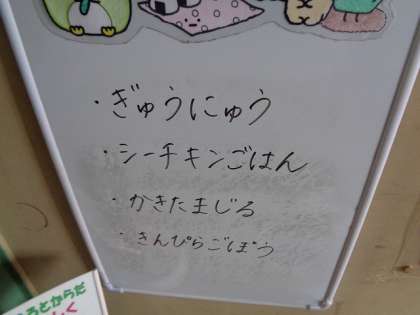 ・ぎゅうにゅう
・シーチキンごはん
・かきたまじる
・きんぴらごぼう
ろとからだ